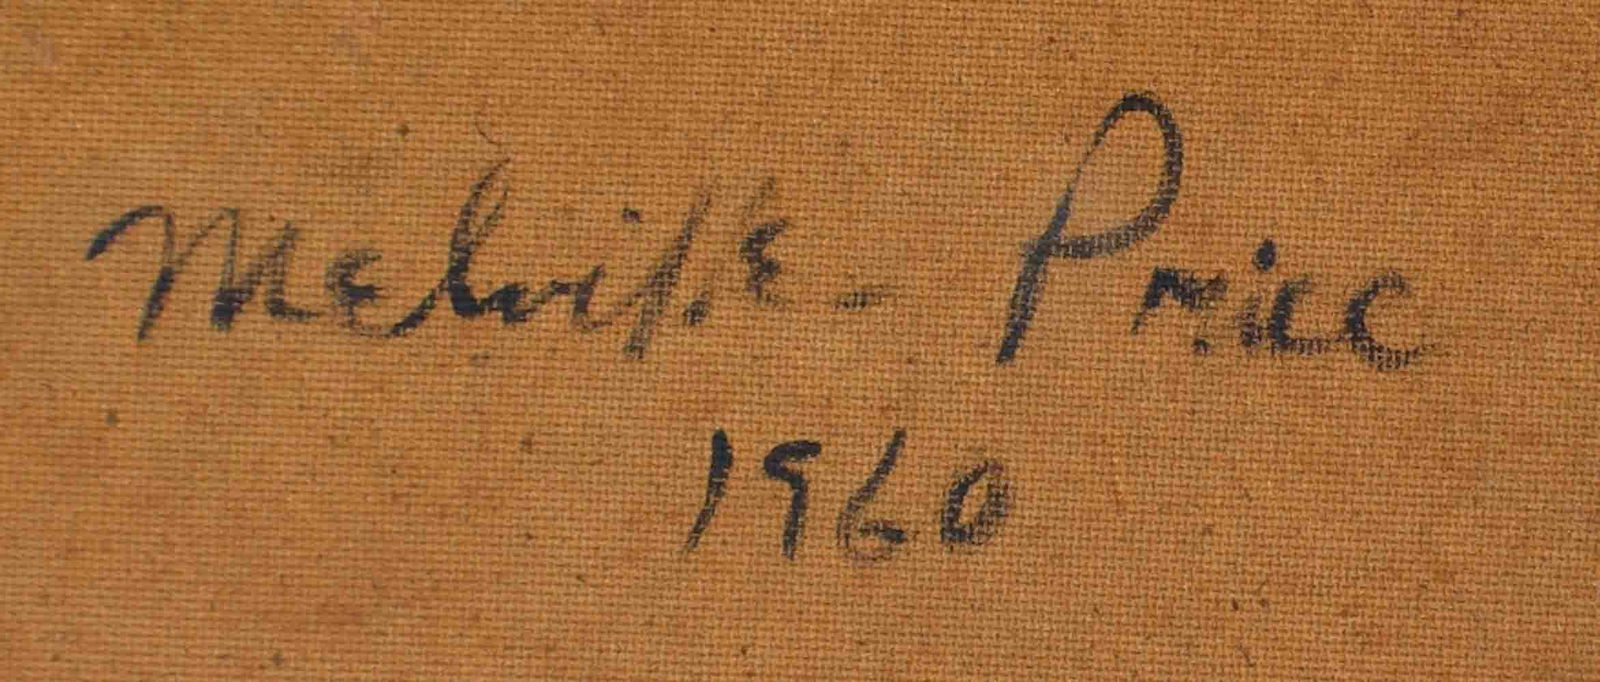 Melville - Price
1960